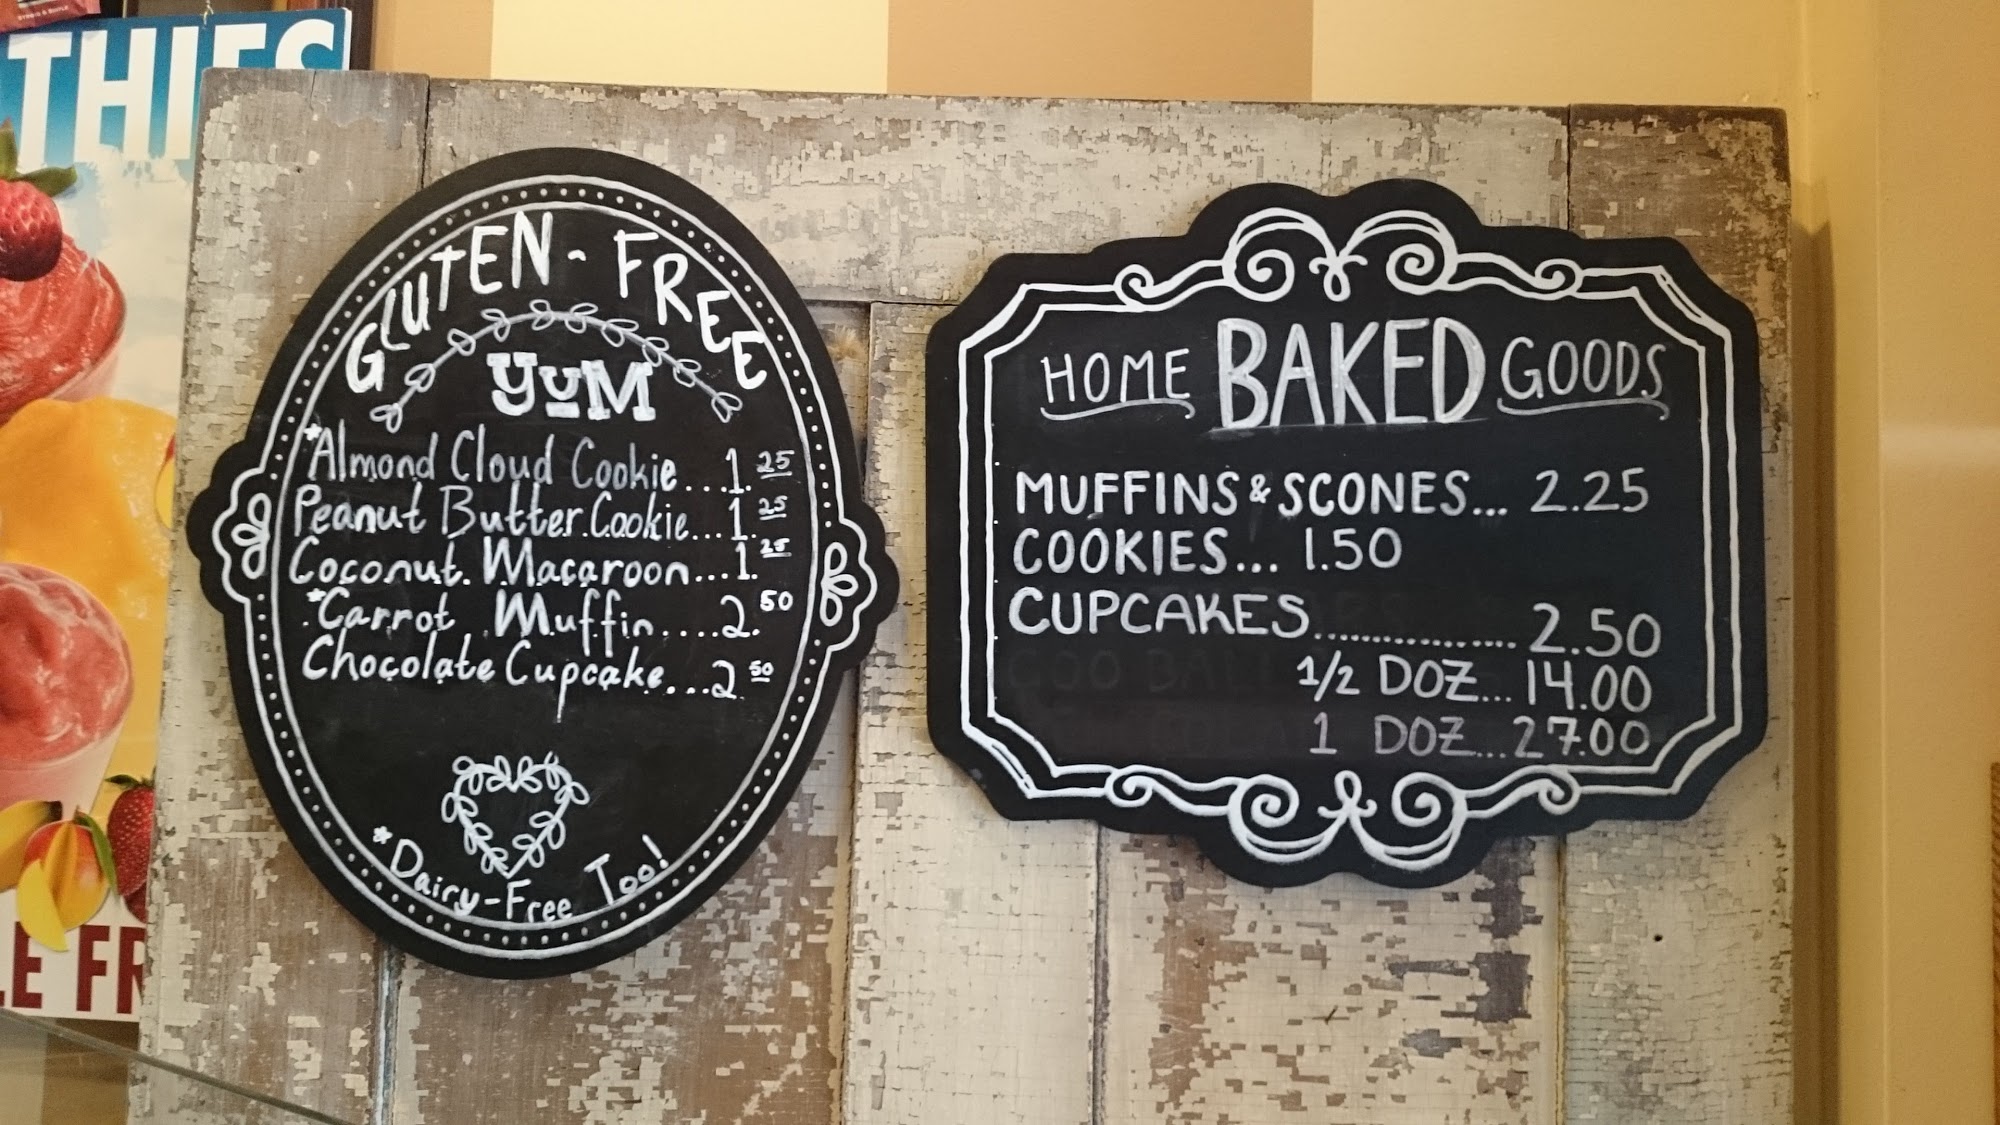 THIES
GLUTEN-FREE
YUM
*Almond Cloud Cookie...1.25
Peanut Butter Cookie...1.25
Coconut Macaroon...1.25
*Carrot Muffin....2.50
Chocolate Cupcake...2.50
*Dairy-Free Too!
HOME BAKED GOODS
MUFFINS & SCONES... 2.25
COOKIES... 1.50
CUPCAKES................ 2.50
1/2 DOZ... 14.00
1 DOZ... 27.00
LE FR